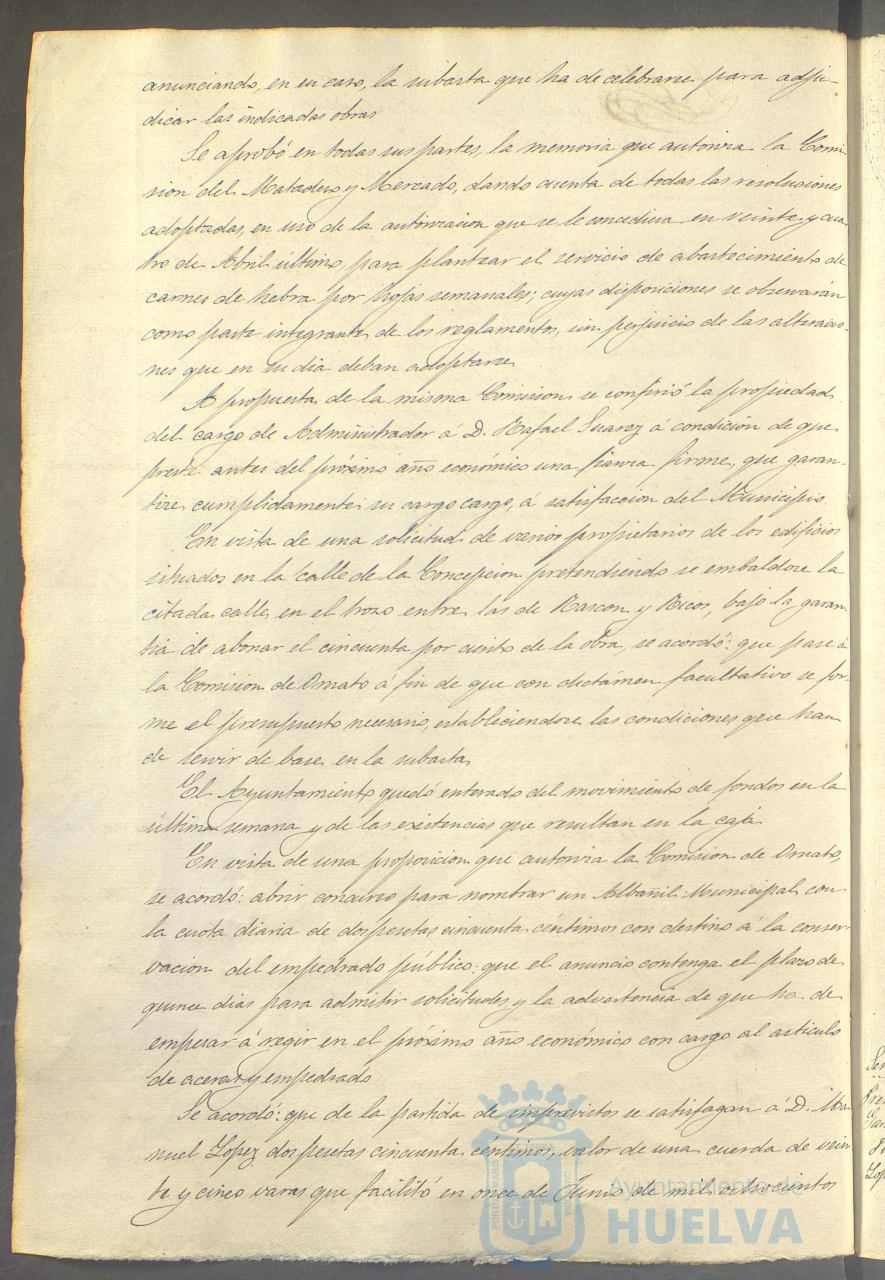 anunciando, en su caso, la subasta que ha de celebrarse para adju-
dicar las indicadas obras
Se aprobó en todas sus partes, la memoria que autoriza la Comi-
sion del Matadero y Mercado, dando cuenta de todas las resoluciones
adoptadas, en uso de la autorizacion que se le concediera en veinte y cua-
tro de Abril último, para plantear el servicio de abastecimiento de
carnes de hebra por hojas semanales; cuyas disposiciones se observarán
como parte integrante de los reglamentos, sin perjuicio de las alteracio-
nes que en su dia deban adoptarse.
A propuesta de la misma Comision se confirió la propiedad
del cargo de Administrador á D. Rafael Suarez á condición de que
preste antes del próximo año económico una fianza firme, que garan-
tice cumplidamente su cargo cargo, á satisfaccion del Municipio
En vista de una solicitud de varios propietarios de los edificios
situados en la calle de la Concepcion pretendiendo se embaldose la
citada calle, en el trozo entre las de Rascon y Ricos, bajo la garan-
tia de abonar el cincuenta por ciento de la obra, se acordó: que pase á
la Comision de Ornato á fin de que con dictámen facultativo se for-
me el presupuesto necesario, estableciendose las condiciones que han
de servir de base en la subasta
El Ayuntamiento quedó enterado del movimiento de fondos en la
última semana y de las existencias que resultan en la caja
En vista de una proposicion que autoriza la Comision de Ornato,
se acordó: abrir concurso para nombrar un Albañil Municipal con
la cuota diaria de dos pesetas cincuenta céntimos con destino á la conser-
vacion del empedrado público; que el anuncio contenga el plazo de
quince dias para admitir solicitudes y la advertencia de que ha de
empesar á regir en el próximo año económico con cargo al articulo
de aceras y empedrado
Se acordó: que de la partida de imprevistos se satisfagan á D. Ma-
nuel Lopez dos pesetas cincuenta céntimos, valor de una cuerda de vein-
te y cinco varas que facilitó en once de Junio de mil ochocientos
Ayuntamiento de
HUELVA